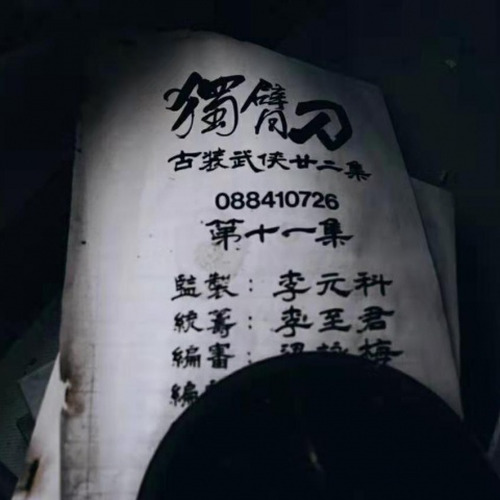 獨臂刀
古裝武俠廿二集
088410726
第十一集
監製：李元科
統籌：李至君
編審：梁詠梅
編